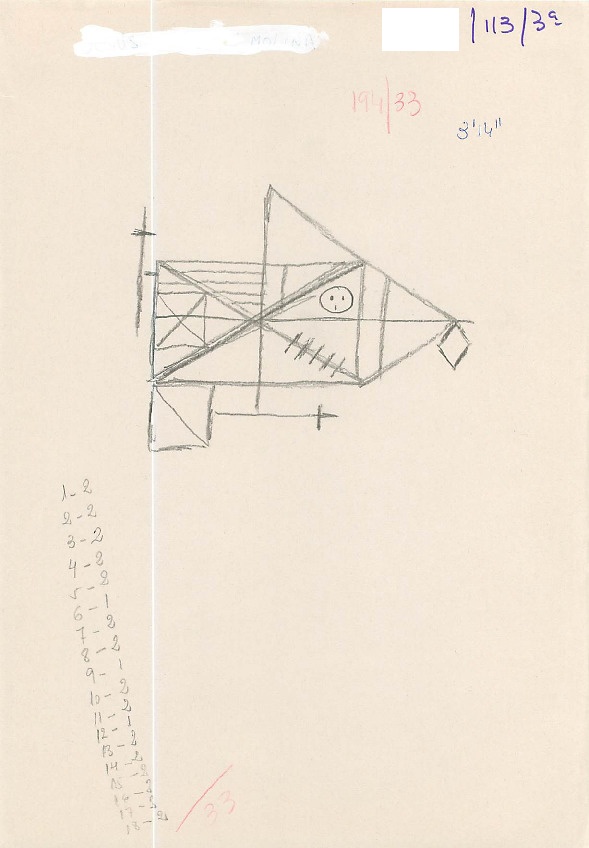 /113/3a
194/33
3'14"
1-2
2-2
3-2
4-2
5-2
6-1
7-2
8-2
9-1
10-2
11-2
12-1
13-2
14-2
15-2
16-2
17-2
18-2
/33